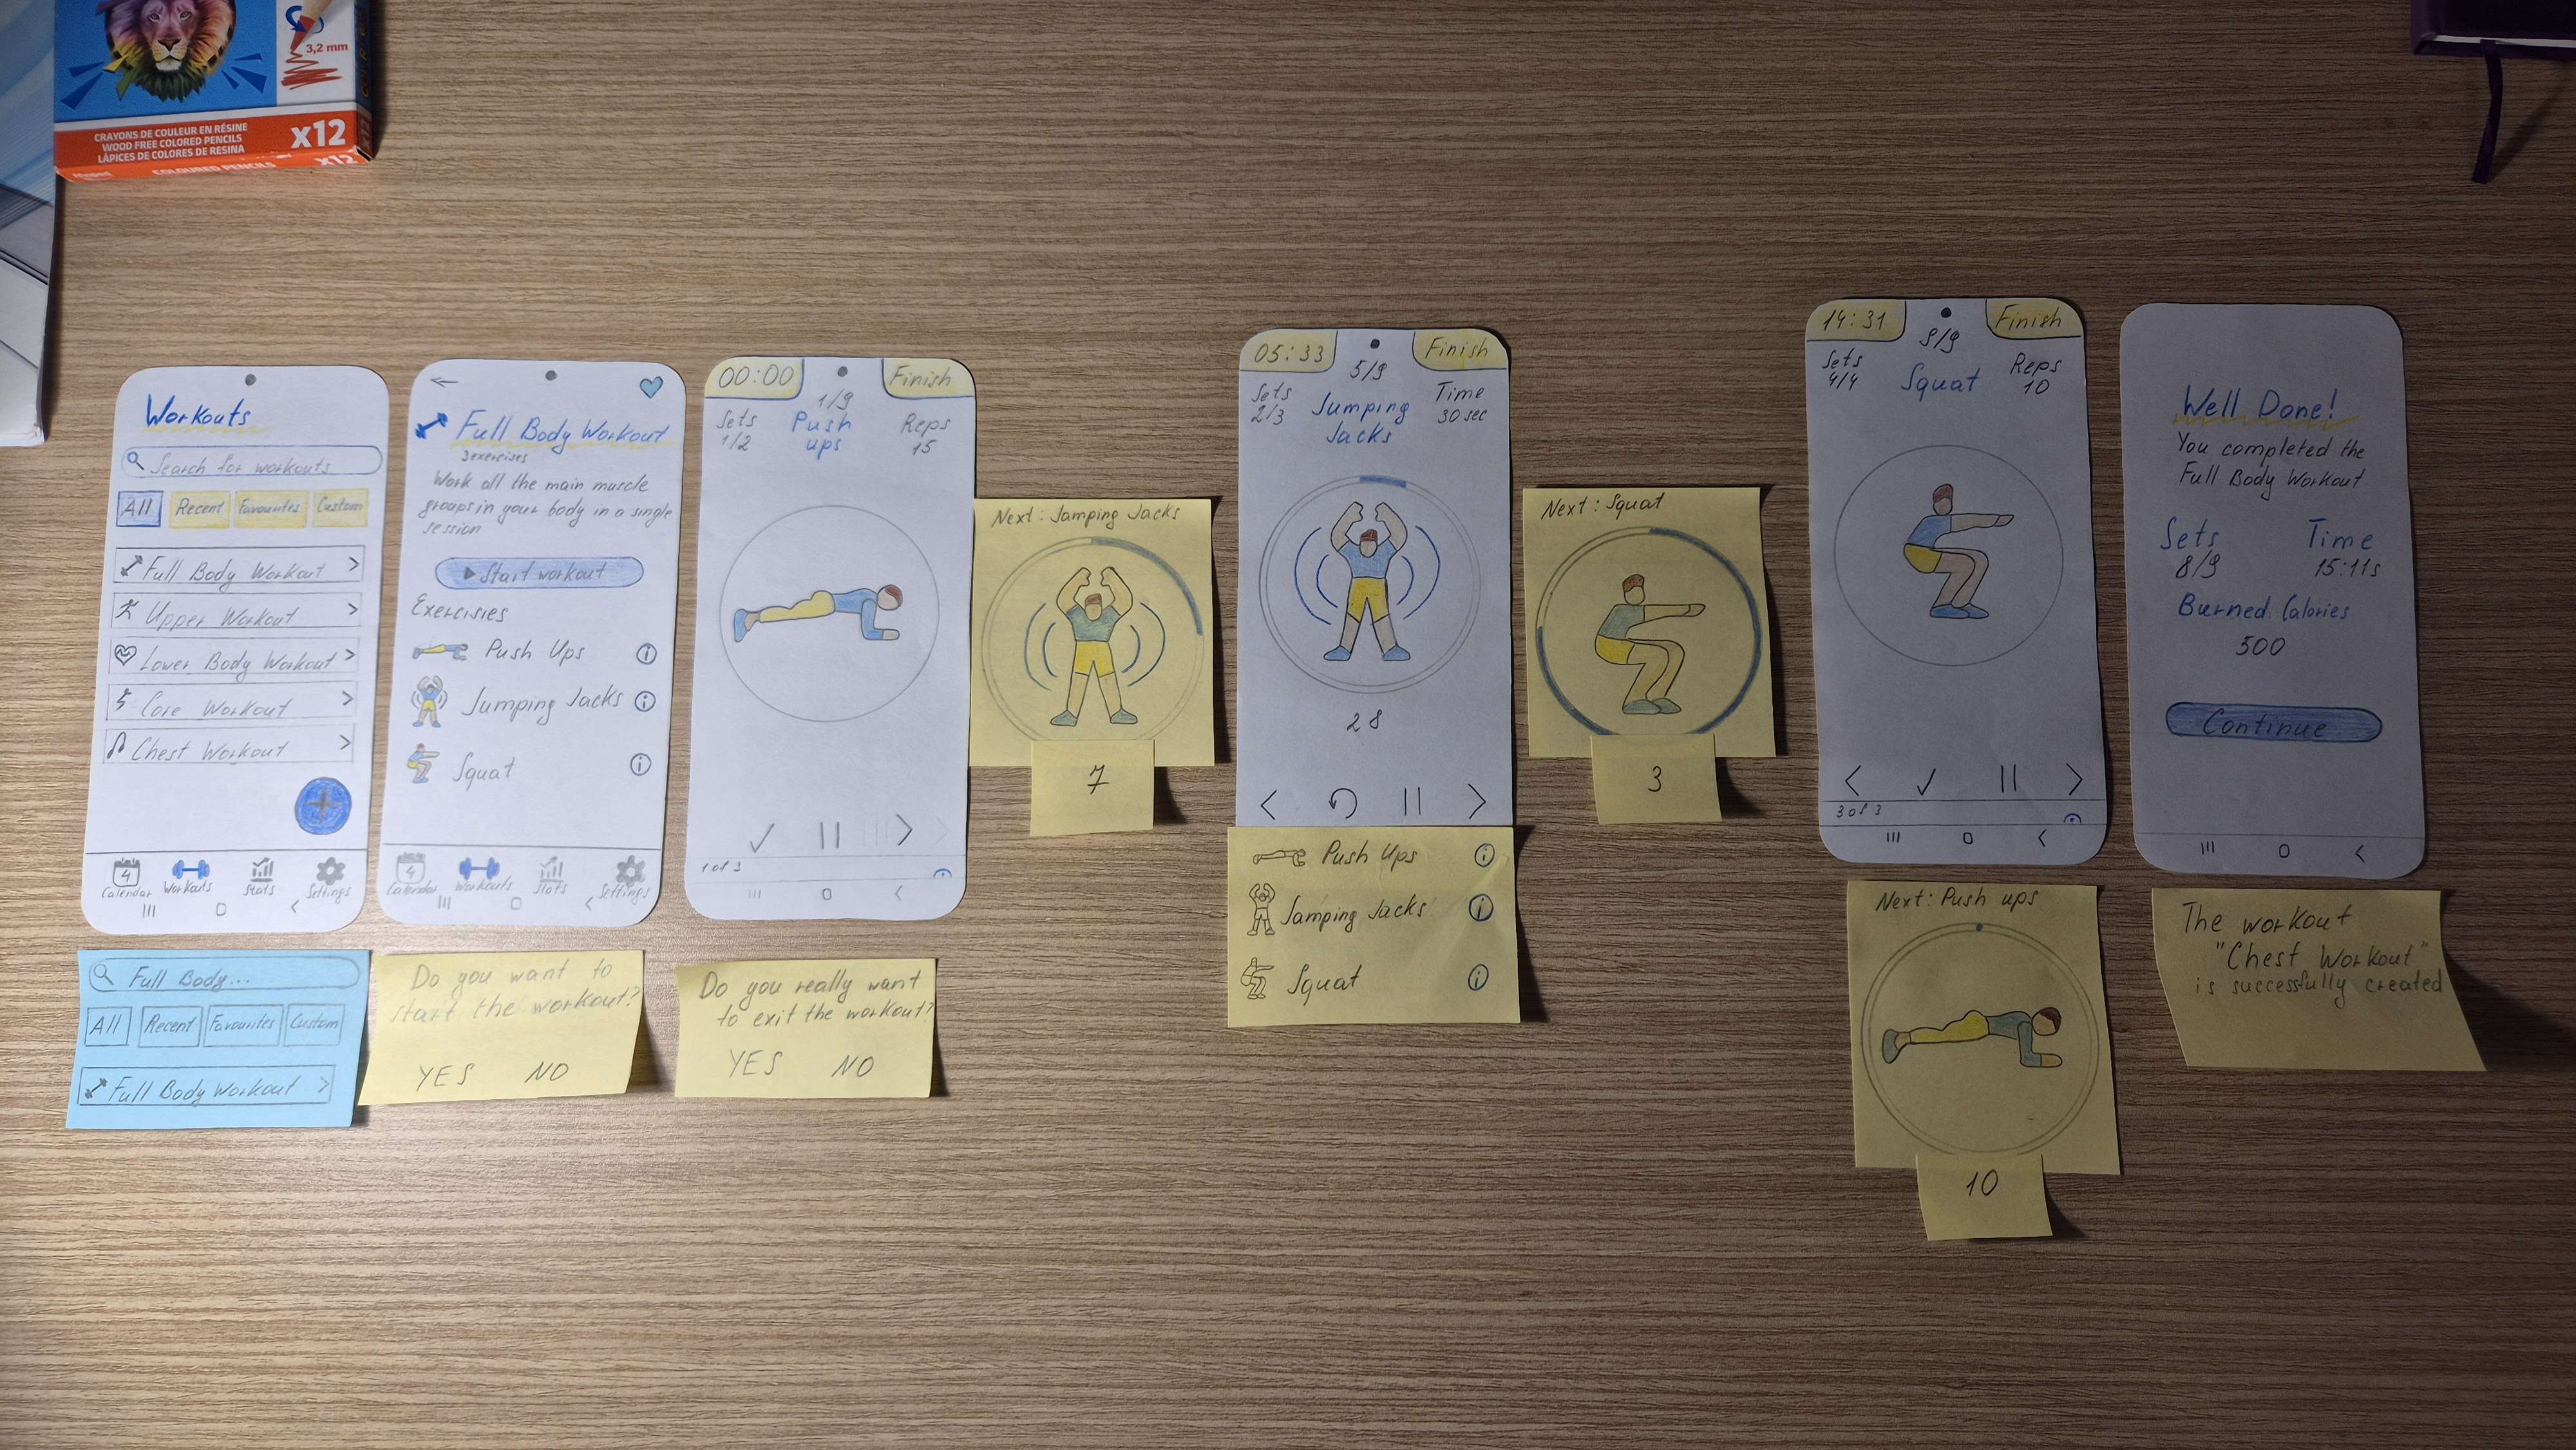 3,2 mm
CRAYONS DE COULEUR EN RÉSINE
WOOD FREE COLORED PENCILS
LÁPICES DE COLORES DE RESINA
x12
COLOURED PENCILS
x12
Workouts
Search for workouts
All Recent Favourites Custom
Full Body Workout >
Upper Workout >
Lower Body Workout >
Core Workout >
Chest Workout >
+
4
Calendar Workouts Stats Settings
Full Body...
All Recent Favourites Custom
Full Body Workout >
Full Body Workout
3exercises
Work all the main muscle
groups in your body in a single
session
Start workout
Exercisies
Push Ups i
Jumping Jacks i
Squat i
4
Calendar Workouts Stats Settings
Do you want to
start the workout?
YES NO
00:00 Finish
1/9
Sets Push Reps
1/2 ups 15
1 of 3
Do you really want
to exit the workout?
YES NO
Next: Jamping Jacks
7
05:33 Finish
5/9
Sets Jumping Time
2/3 Jacks 30 sec
28
Push Ups i
Jamping Jacks i
Squat i
Next: Squat
3
14:31 Finish
Sets Squat Reps
4/4 10
3 of 3
Next: Push ups
10
Well Done!
You completed the
Full Body Workout
Sets Time
8/9 15:11s
Burned Calories
500
Continue
The workout
"Chest Workout"
is successfully created